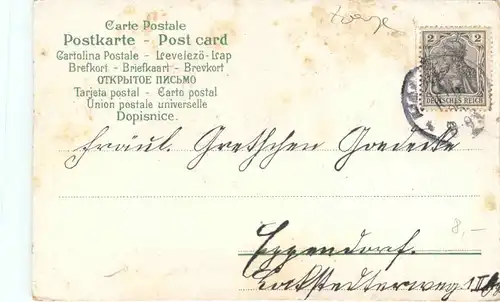 Carte Postale
Postkarte - Post card
Cartolina Postale - Levelező-Lap
Brefkort - Briefkaart - Brevkort
ОТКРЫТОЕ ПИСЬМО
Tarjeta postal - Carto postal
Union postale universelle
Dopisnice.
2 2
DEUTSCHES REICH
Fräul. Gretchen Goedecke
8,-
Eppendorf.
Lokstedterweg